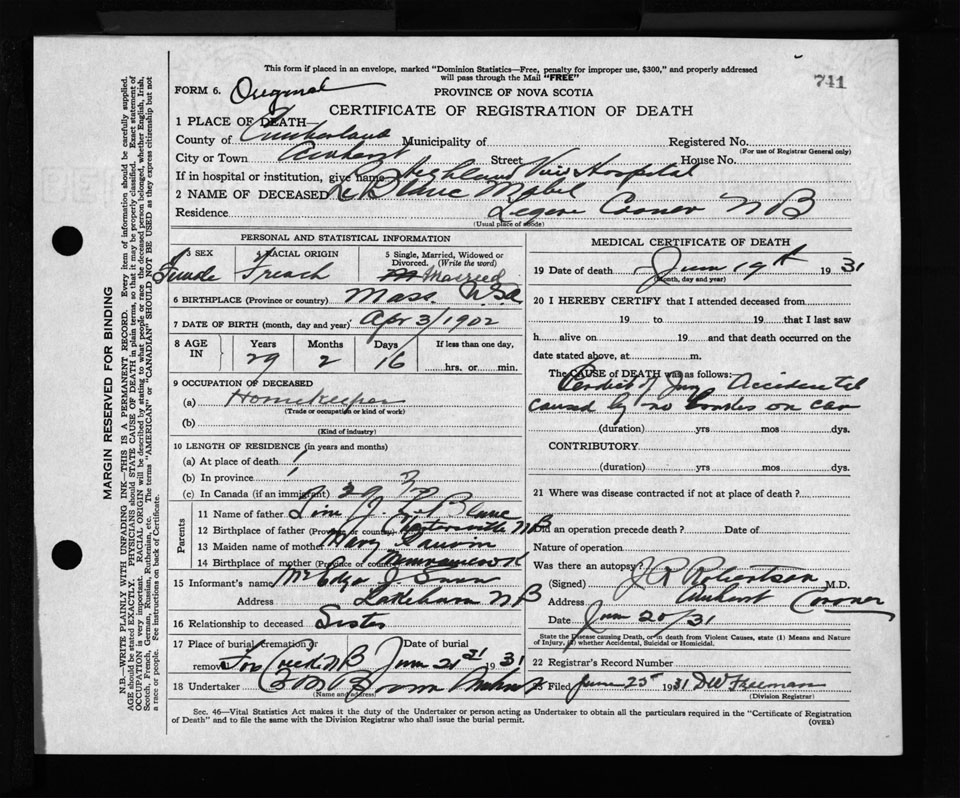 This form if placed in an envelope, marked "Dominion Statistics—Free, penalty for improper use, $300," and properly addressed
will pass through the Mail "FREE"
741
FORM 6. Original
PROVINCE OF NOVA SCOTIA
CERTIFICATE OF REGISTRATION OF DEATH
1 PLACE OF DEATH—
County of Cumberland Municipality of Registered No.
(For use of Registrar General only)
City or Town Amherst Street House No.
If in hospital or institution, give name Highland View Hospital
2 NAME OF DECEASED LeBlanc Mabel
Residence Legere Corner NB
(Usual place of abode)
PERSONAL AND STATISTICAL INFORMATION
3 SEX 4 RACIAL ORIGIN 5 Single, Married, Widowed or
Divorced. (Write the word)
Female French Married
6 BIRTHPLACE (Province or country) Mass. USA
7 DATE OF BIRTH (month, day and year) Apr 3/1902
8 AGE IN Years Months Days If less than one day,
29 2 16 hrs. or min.
9 OCCUPATION OF DECEASED
(a) Homekeeper
(Trade or occupation or kind of work)
(b)
(Kind of industry)
10 LENGTH OF RESIDENCE (in years and months)
(a) At place of death 1
(b) In province 1
(c) In Canada (if an immigrant) 29
Parents
11 Name of father J. LeBlanc
12 Birthplace of father (Province or country) NB
13 Maiden name of mother Mary
14 Birthplace of mother (Province or country)
15 Informant's name Mr Edgar J
Address Lakeburn NB
16 Relationship to deceased Sister
17 Place of burial, cremation or Date of burial
removal Fox Creek NB June 21st 1931
18 Undertaker Brown Amherst
(Name and address)
MEDICAL CERTIFICATE OF DEATH
19 Date of death June 19th 1931
(month, day and year)
20 I HEREBY CERTIFY that I attended deceased from
19 to 19 that I last saw
h alive on 19 and that death occurred on the
date stated above, at m.
The CAUSE of DEATH was as follows:
Verdict of Jury Accidental
caused by no brakes on car
(duration) yrs mos dys.
CONTRIBUTORY
(duration) yrs mos dys.
21 Where was disease contracted if not at place of death?
Did an operation precede death? Date of
Nature of operation
Was there an autopsy?
(Signed) J R Robertson M.D.
Address Amherst Coroner
Date June 20/31
State the Disease causing Death, or in death from Violent Causes, state (1) Means and Nature
of Injury, (2) whether Accidental, Suicidal or Homicidal.
22 Registrar's Record Number
23 Filed June 25th 1931 DW Freeman
(Division Registrar)
Sec. 46—Vital Statistics Act makes it the duty of the Undertaker or person acting as Undertaker to obtain all the particulars required in the "Certificate of Registration
of Death" and to file the same with the Division Registrar who shall issue the burial permit.
(OVER)
MARGIN RESERVED FOR BINDING
N.B.—WRITE PLAINLY WITH UNFADING INK—THIS IS A PERMANENT RECORD. Every item of information should be carefully supplied.
AGE should be stated EXACTLY. PHYSICIANS should STATE CAUSE OF DEATH in plain terms, so that it may be properly classified. Exact statement of
OCCUPATION is very important. RACIAL ORIGIN will be described by stating to what people or race the deceased person belonged, whether English, Irish,
Scotch, French, German, Russian, Ruthenian, etc. The terms "AMERICAN" or "CANADIAN" SHOULD NOT BE USED as they express citizenship but not
a race or people. See instructions on back of Certificate.